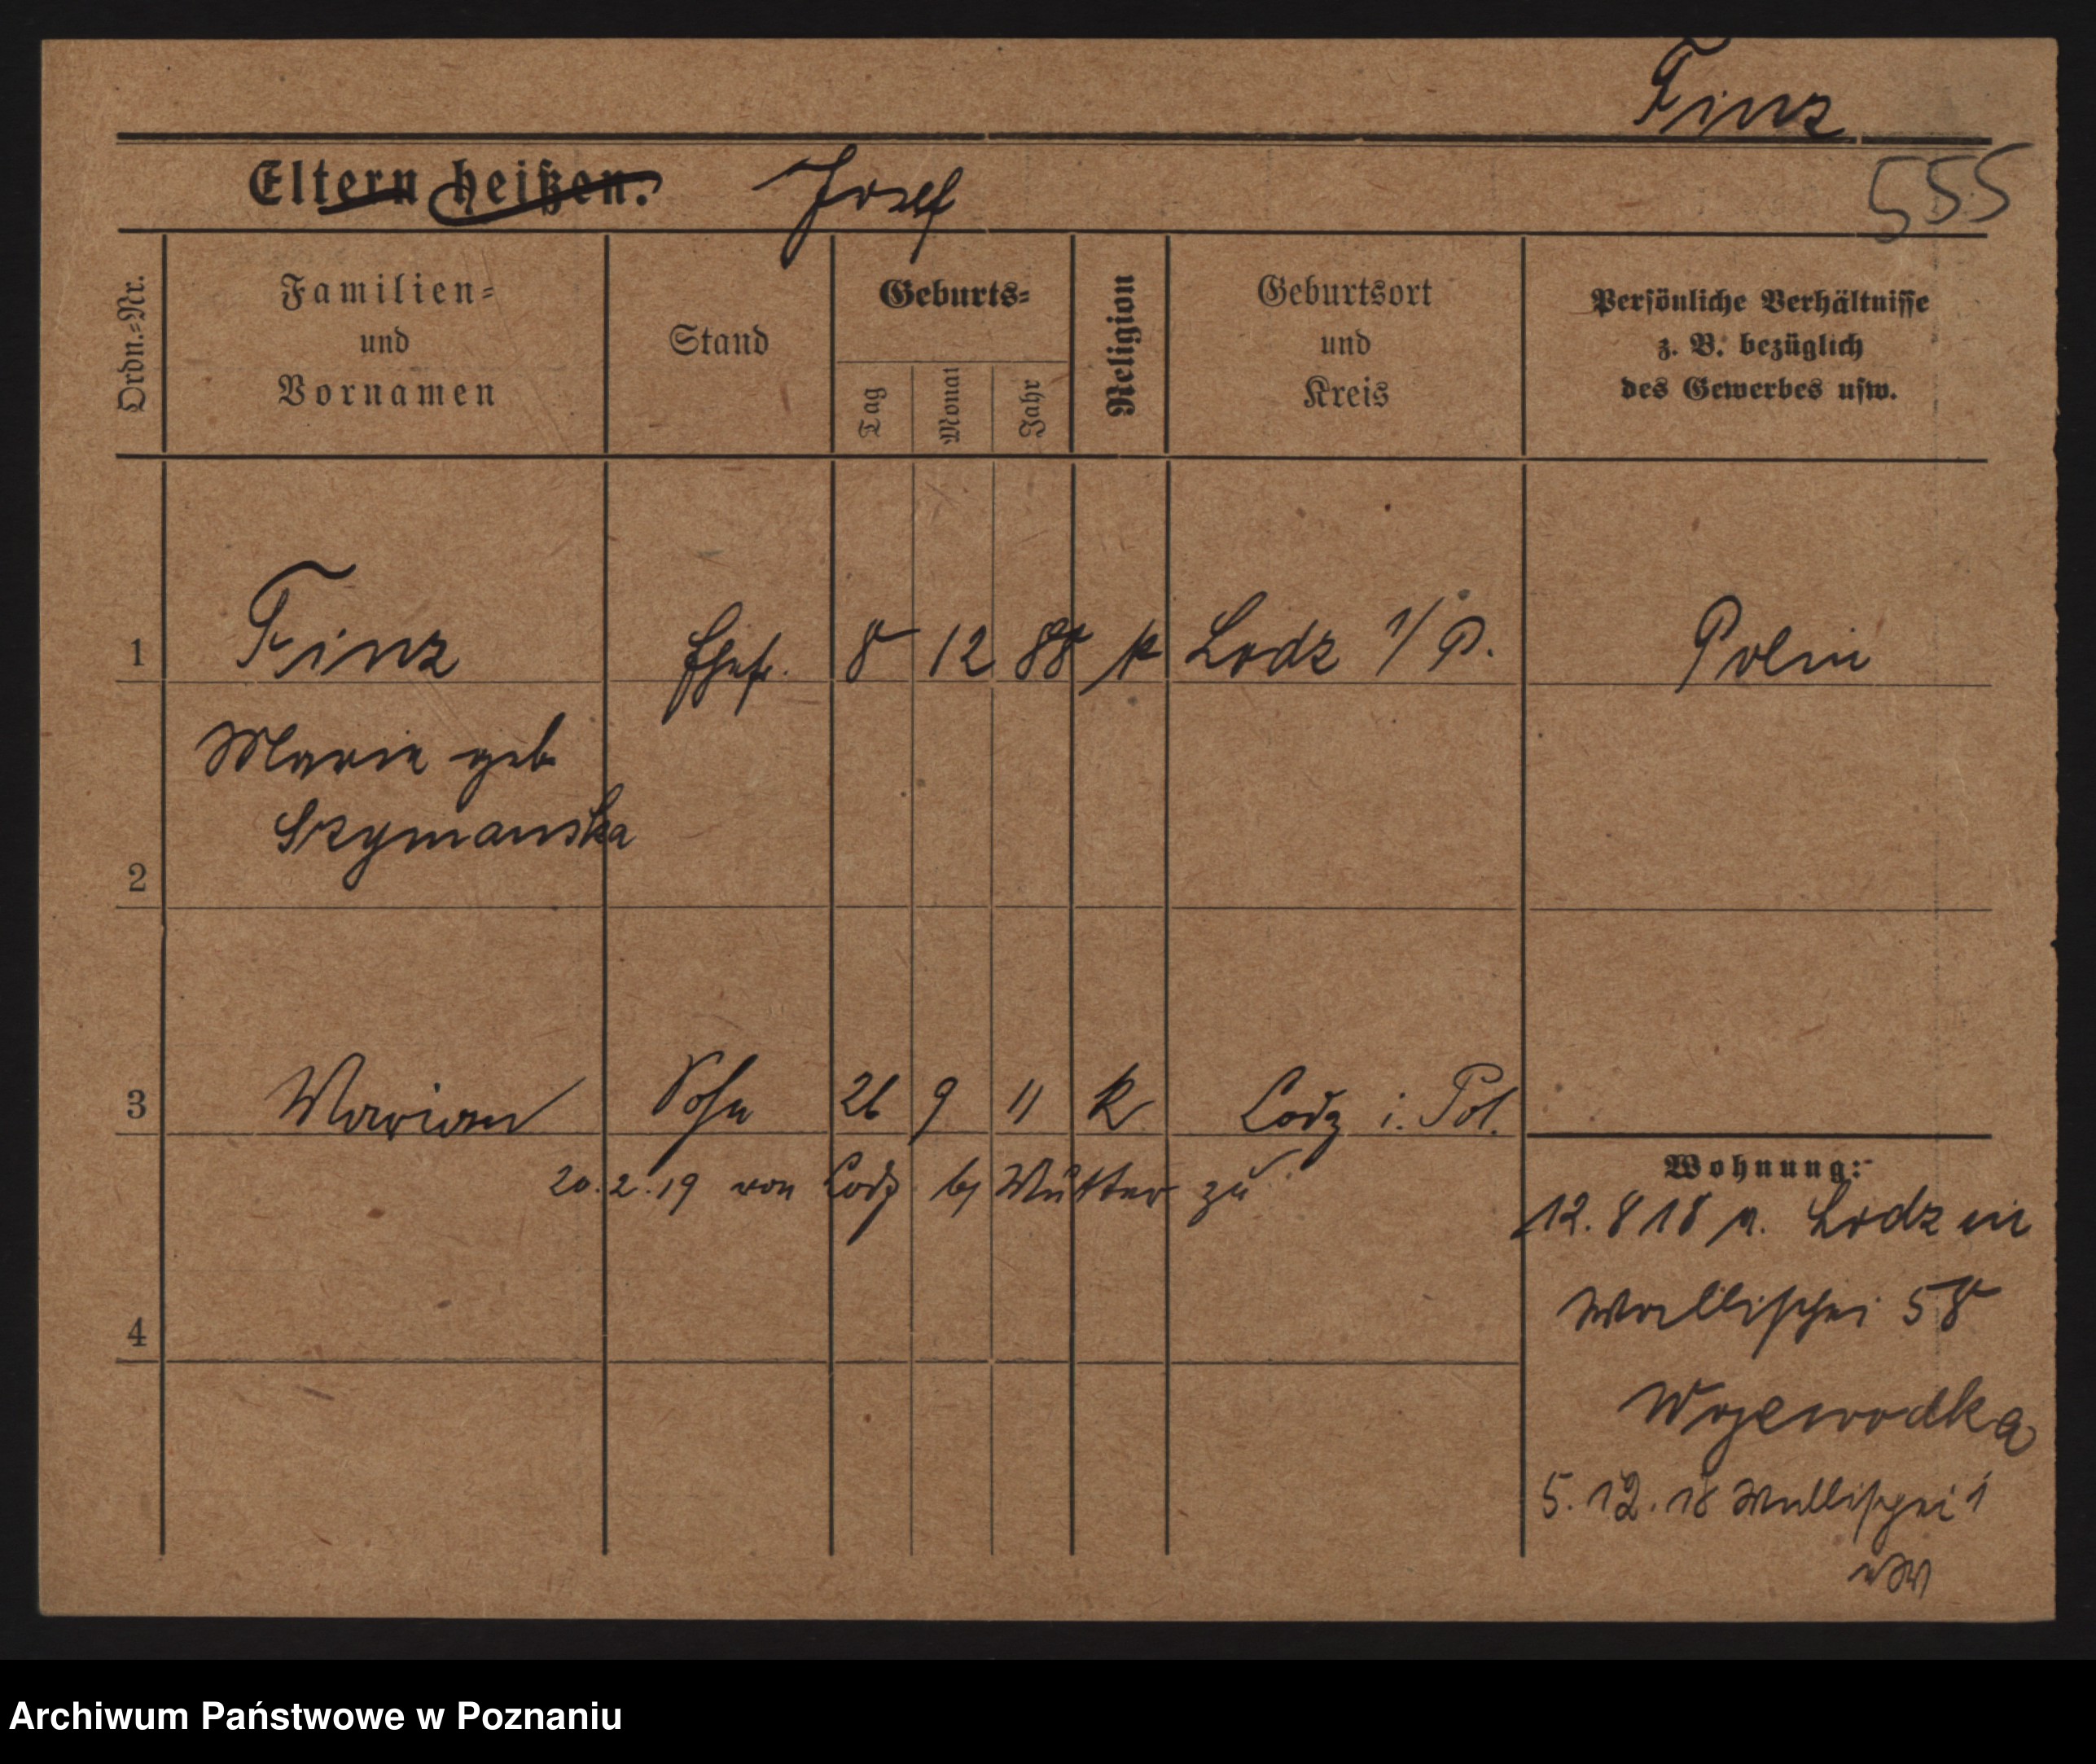 Finz
Eltern heißen: Josef
555
Ordn.=Nr.
Familien=
und
Vornamen
Stand
Geburts=
Tag
Monat
Jahr
Religion
Geburtsort
und
Kreis
Persönliche Verhältnisse
z. B. bezüglich
des Gewerbes usw.
1 Finz Ehefr. 8 12 88 k Lodz i/P. Polin
Marie geb.
Szymanska
2
3 Marian Sohn 26 9 11 k Lodz i. Pol.
20.2.19 von Lodz bei Mutter zu
4
Wohnung:
12.8 18 v. Lodz in
Wallischei 58
Wojewodka
5.12.18 Wallischei 1
Archiwum Państwowe w Poznaniu